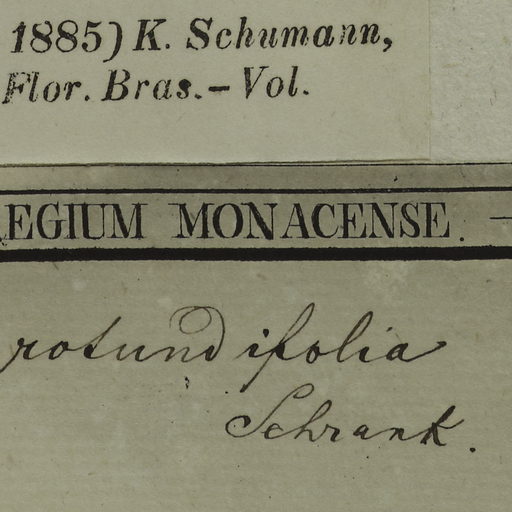 1885) K. Schumann,
Flor. Bras. – Vol.
EGIUM MONACENSE.
rotundifolia
Schrank.